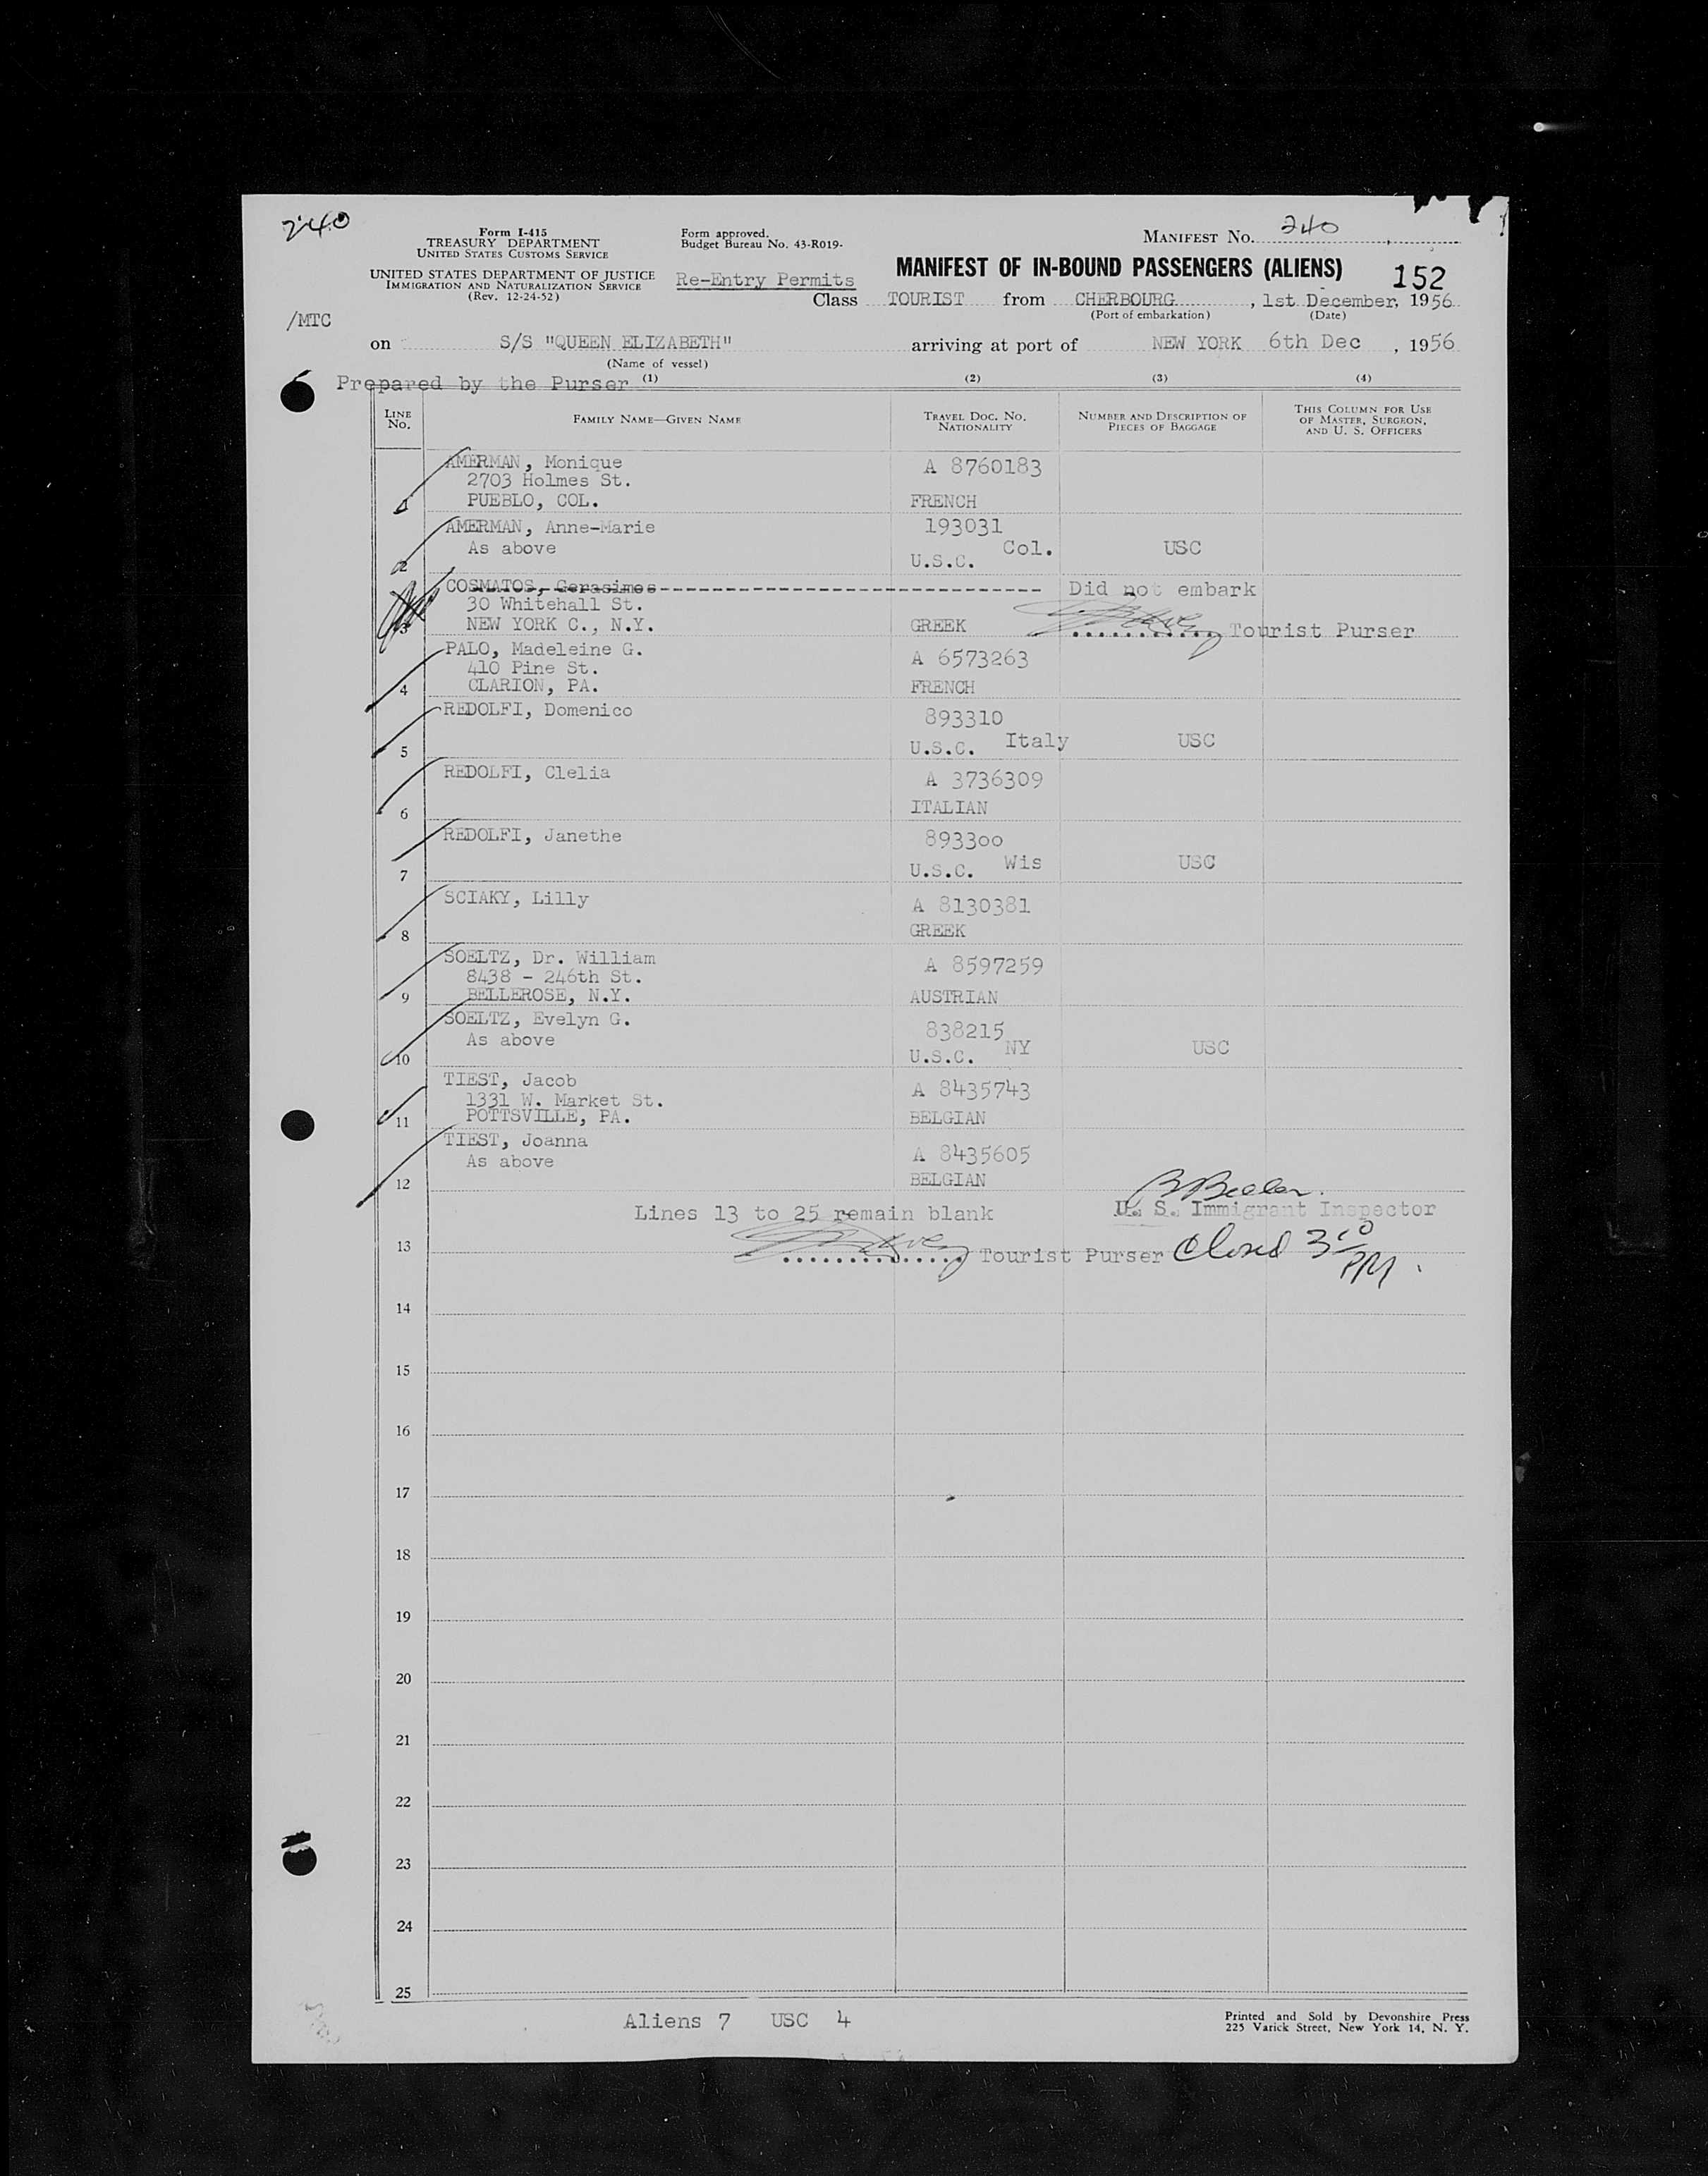 240
Form I-415
TREASURY DEPARTMENT
UNITED STATES CUSTOMS SERVICE
UNITED STATES DEPARTMENT OF JUSTICE
IMMIGRATION AND NATURALIZATION SERVICE
(Rev. 12-24-52)
Form approved.
Budget Bureau No. 43-R019-
Re-Entry Permits
MANIFEST No. 240
MANIFEST OF IN-BOUND PASSENGERS (ALIENS) 152
Class TOURIST from CHERBOURG, 1st December, 1956
(Port of embarkation) (Date)
/MTC
on S/S "QUEEN ELIZABETH" arriving at port of NEW YORK 6th Dec, 1956
(Name of vessel)
Prepared by the Purser (1) (2) (3) (4)
LINE No. FAMILY NAME—GIVEN NAME TRAVEL DOC. NO. NATIONALITY NUMBER AND DESCRIPTION OF PIECES OF BAGGAGE THIS COLUMN FOR USE OF MASTER, SURGEON, AND U. S. OFFICERS
AMERMAN, Monique A 8760183
2703 Holmes St.
1 PUEBLO, COL. FRENCH
AMERMAN, Anne-Marie 193031
As above Col. USC
2 U.S.C.
COSMATOS, Gerasimos Did not embark
30 Whitehall St.
3 NEW YORK C., N.Y. GREEK Tourist Purser
PALO, Madeleine G. A 6573263
410 Pine St.
4 CLARION, PA. FRENCH
REDOLFI, Domenico 893310
5 U.S.C. Italy USC
REDOLFI, Clelia A 3736309
6 ITALIAN
REDOLFI, Janethe 893300
7 U.S.C. Wis USC
SCIAKY, Lilly A 8130381
8 GREEK
SOELTZ, Dr. William A 8597259
8438 - 246th St.
9 BELLEROSE, N.Y. AUSTRIAN
SOELTZ, Evelyn G. 838215
As above
10 U.S.C. NY USC
TIEST, Jacob A 8435743
1331 W. Market St.
11 POTTSVILLE, PA. BELGIAN
TIEST, Joanna A 8435605
As above
12 BELGIAN
Lines 13 to 25 remain blank U. S. Immigrant Inspector
13 Tourist Purser Closed 3 10 PM.
14
15
16
17
18
19
20
21
22
23
24
25
Aliens 7 USC 4
Printed and Sold by Devonshire Press
225 Varick Street, New York 14, N. Y.